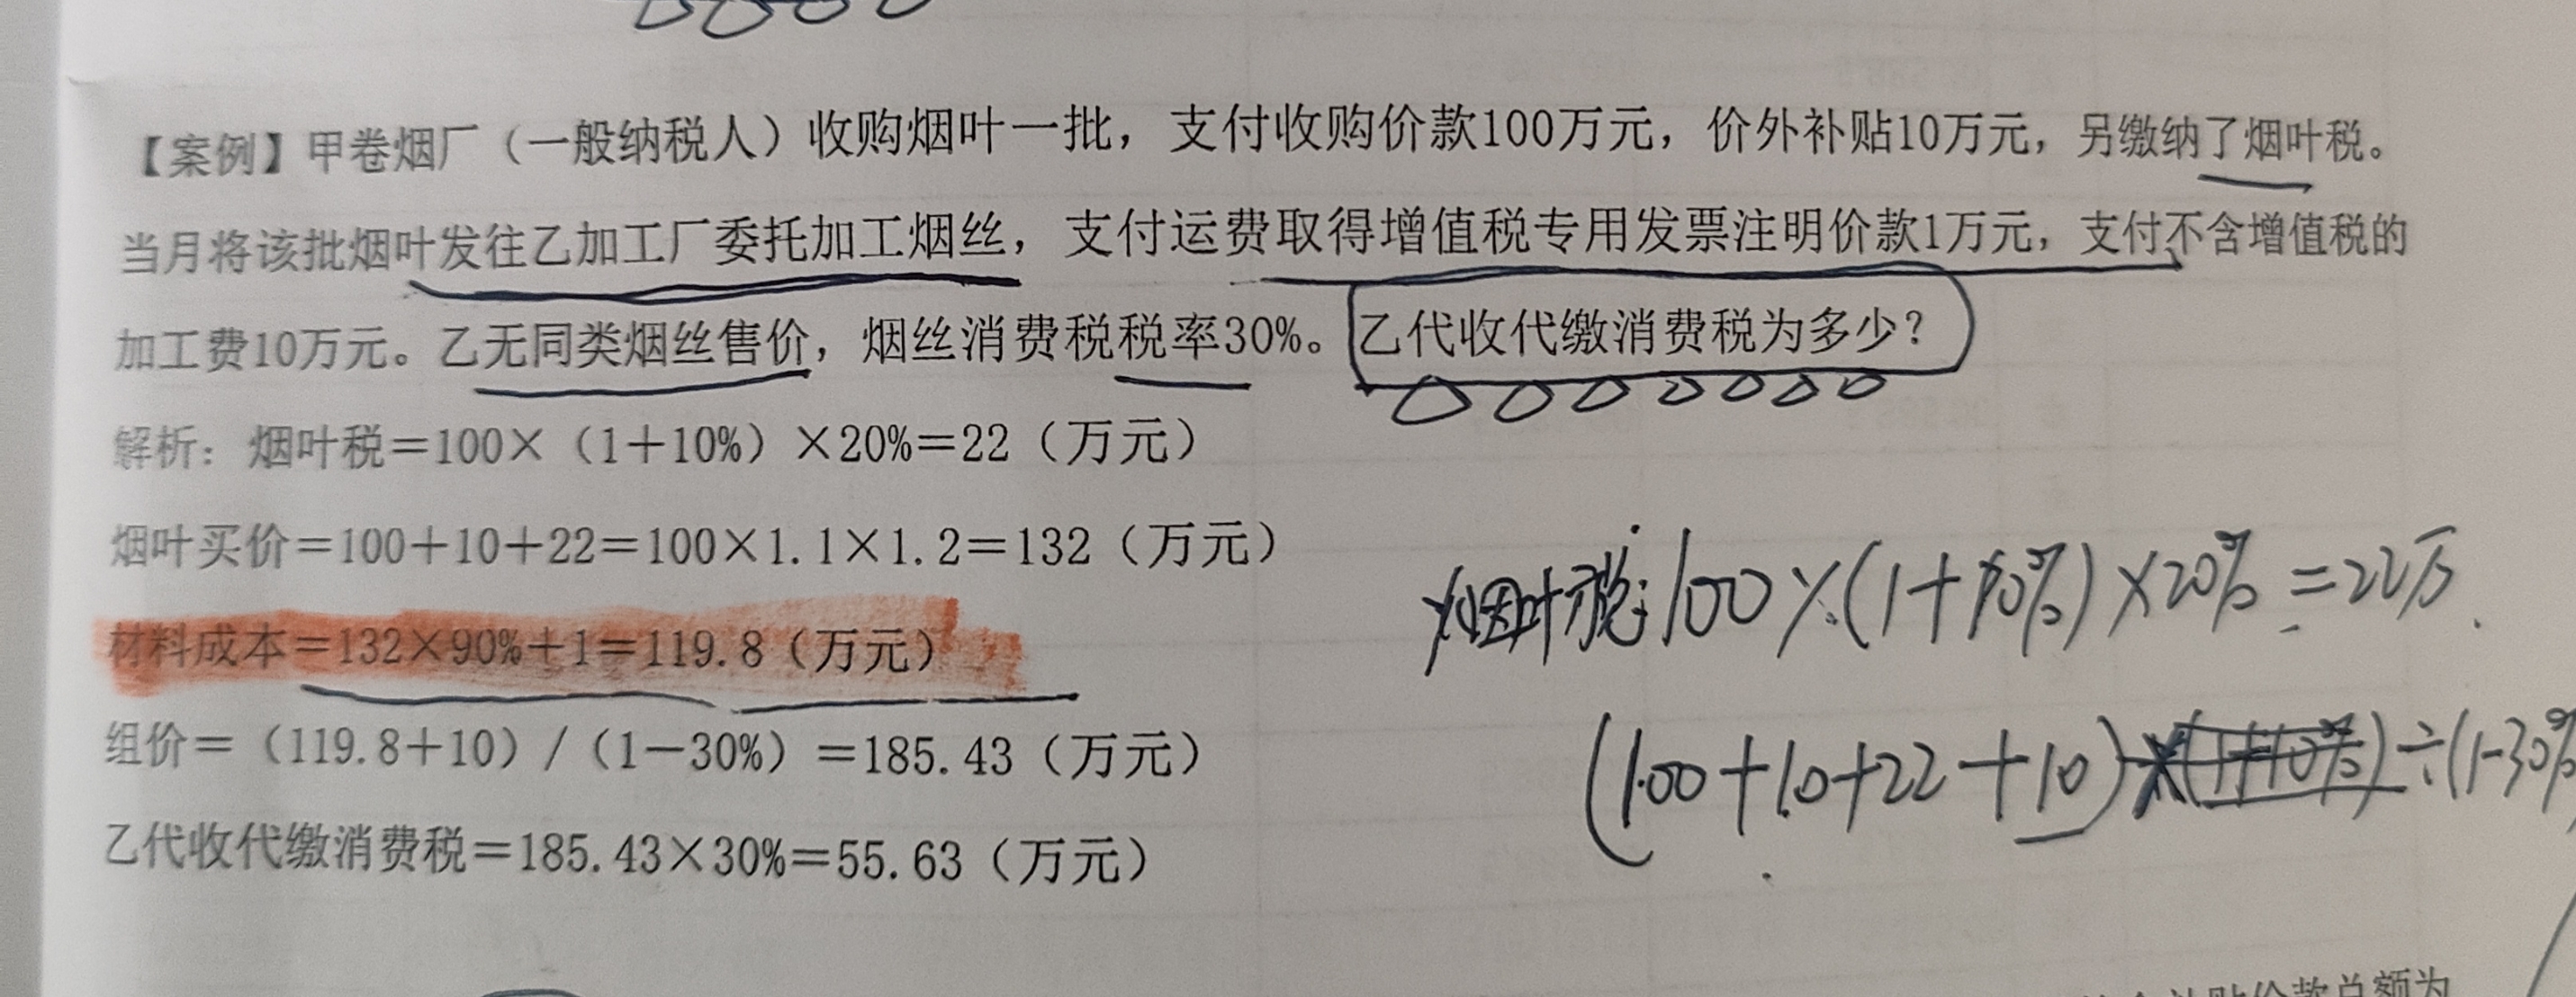 【案例】甲卷烟厂（一般纳税人）收购烟叶一批，支付收购价款100万元，价外补贴10万元，另缴纳了烟叶税。
当月将该批烟叶发往乙加工厂委托加工烟丝，支付运费取得增值税专用发票注明价款1万元，支付不含增值税的
加工费10万元。乙无同类烟丝售价，烟丝消费税税率30%。乙代收代缴消费税为多少？
解析：烟叶税＝100×（1＋10%）×20%＝22（万元）
烟叶买价＝100＋10＋22＝100×1.1×1.2＝132（万元）
材料成本＝132×90%＋1＝119.8（万元）
组价＝（119.8＋10）/（1－30%）＝185.43（万元）
乙代收代缴消费税＝185.43×30%＝55.63（万元）
烟叶税：100×(1+10%)×20%=22万
(100+10+22+10)×(1+10%)÷(1-30%
补贴价款总额为